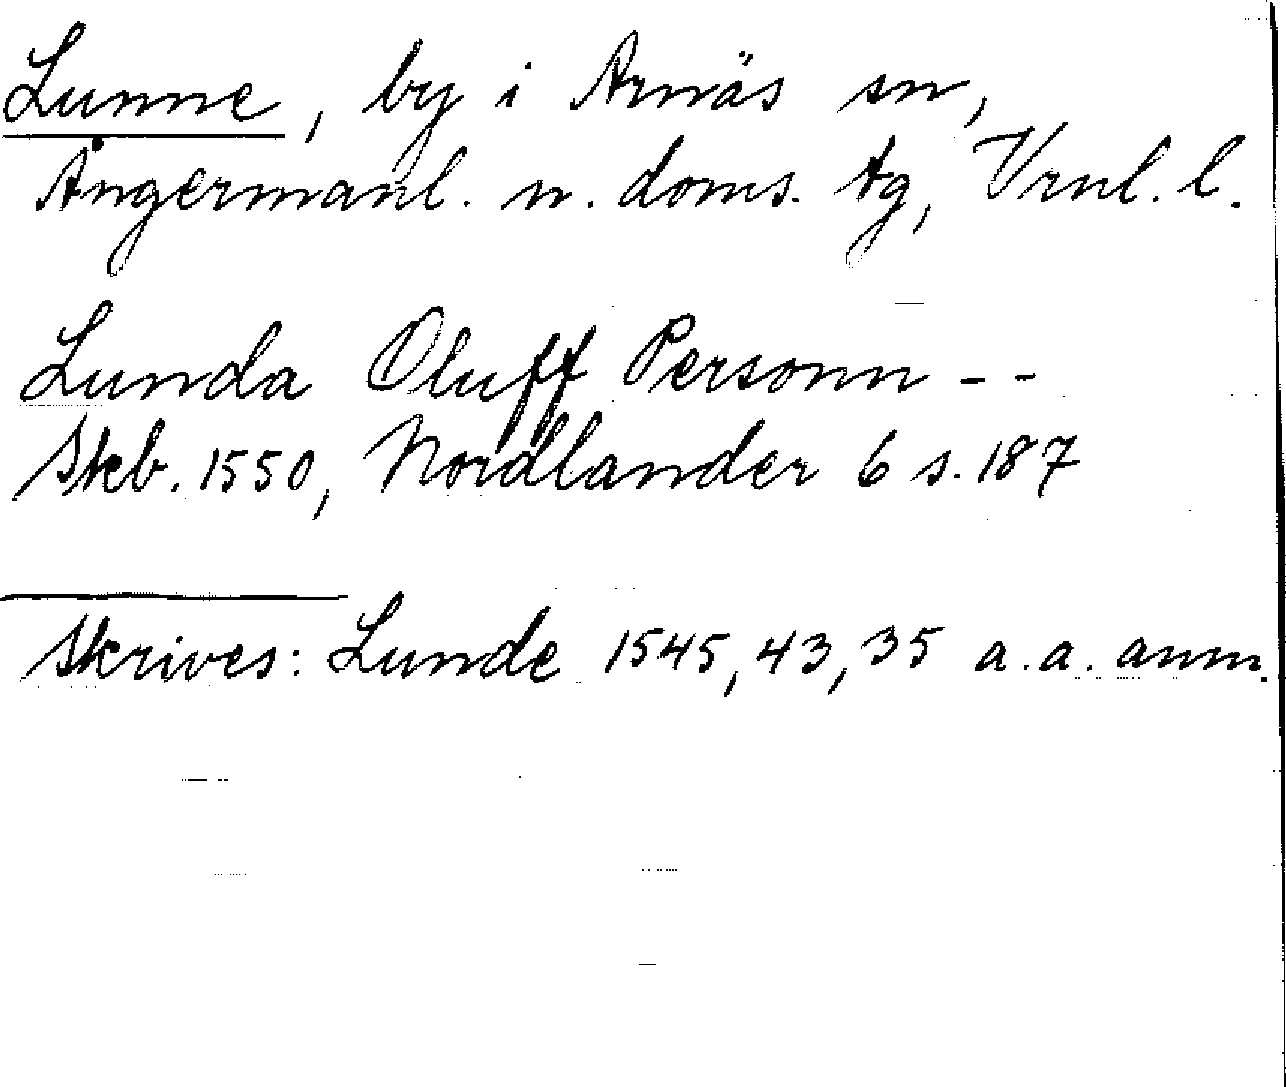 Lunne, by i Arnäs sn,
Ångermanl. n. doms. tg, Vrnl. l.
Lunda Oluff Personn - -
Skb. 1550, Nordlander 6 s. 187
Skrives: Lunde 1545, 43, 35 a. a. anm.